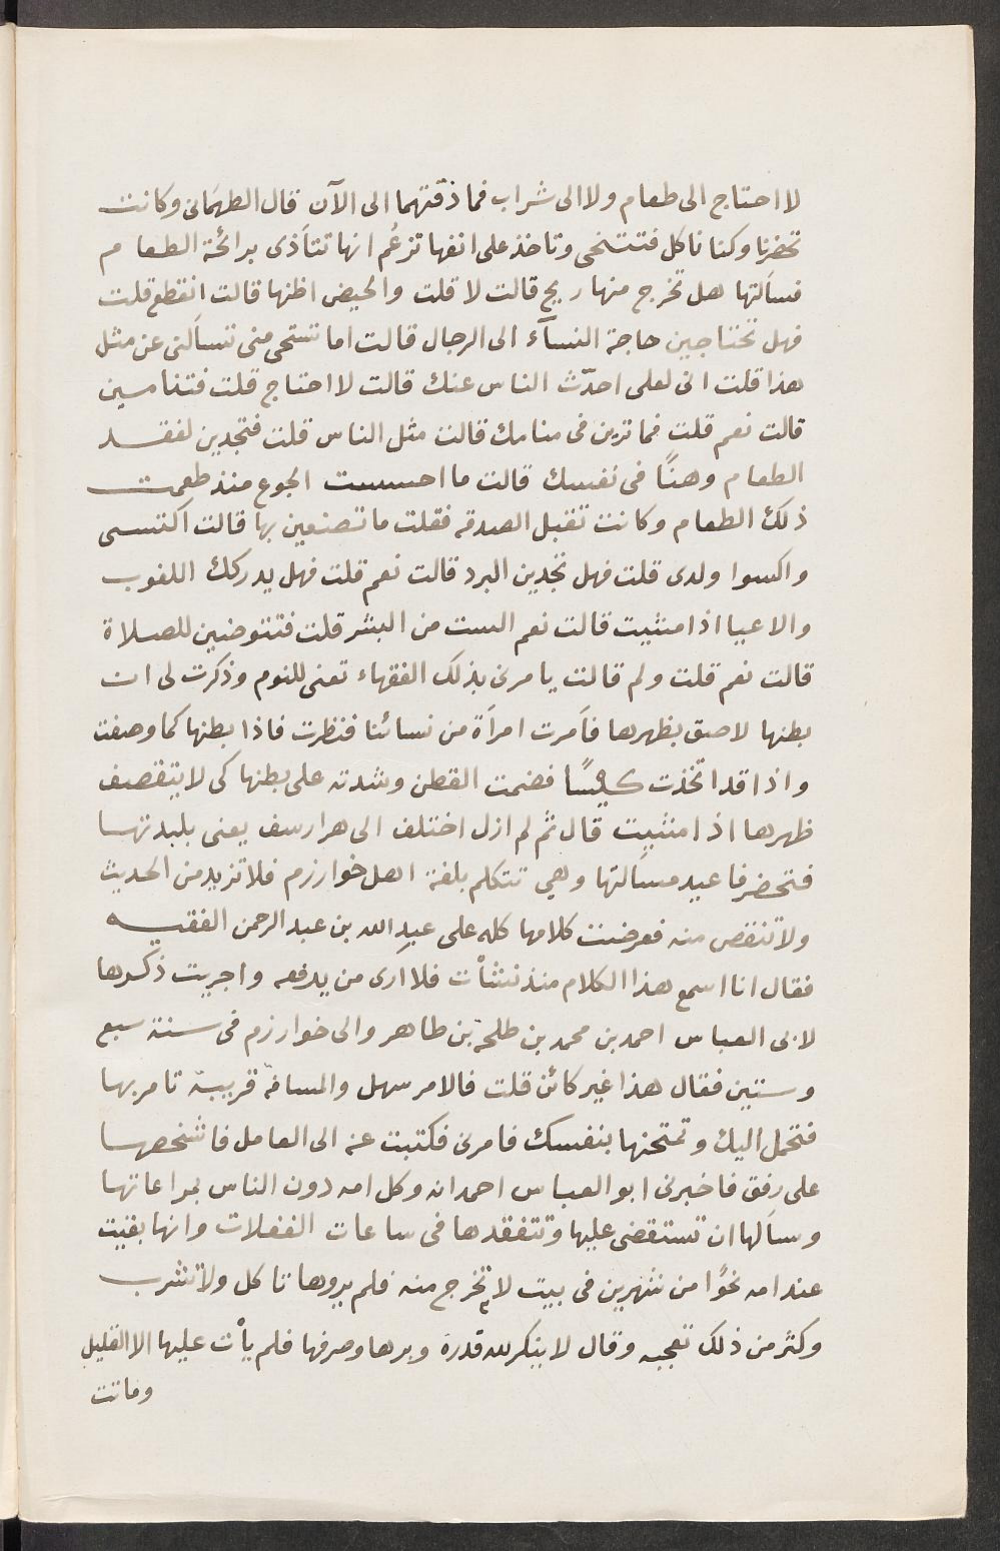 لا احتاج الى طعام ولا الى شراب فما ذقتهما الى الآن قال الطهمانى وكانت
تحضرنا وكنا ناكل فتتنحى وتاخذ على انفها تزعُم انها تتأذى برائحة الطعام
فسألتها هل تخرج منها ريح قالت لا قلت والحيض اظنها قالت انقطع قلت
فهل تحتاجين حاجة النسآء الى الرجال قالت اما تستحى منى تسألنى عن مثل
هذا قلت انى لعلى احدّث الناس عنك قالت لا احتاج قلت فتنامين
قالت نعم قلت فما ترين فى منامك قالت مثل الناس قلت فتجدين لفقد
الطعام وهنًا فى نفسك قالت ما احسست الجوع منذ طعمت
ذلك الطعام وكانت تقبل الصدقه فقلت ما تصنعين بها قالت اكتسى
واكسوا ولدى قلت فهل تجدين البرد قالت نعم قلت فهل يدركك اللغوب
والاعيا اذا مشيت قالت نعم الست من البشر قلت فتتوضين للصلاة
قالت نعم قلت ولم قالت يامرنى بذلك الفقهاء تعنى للنوم وذكرت لى ان
بطنها لاصق بظهرها فأمرت امرأة من نسائنا فنظرت فاذا بطنها كما وصفت
واذا قد اتخذت كيسًا فضمت القطن وشدته على بطنها كى لا يتقصف
ظهرها اذا مشيت قال ثم لم ازل اختلف الى هزارسف يعنى بلبدتها
فتحضر فاعيد مسألتها وهي تتكلم بلغة اهل خوارزم فلا تزيد من الحديث
ولا تنقص منه فعرضت كلامها كله على عبد الله بن عبد الرحمن الفقيه
فقال انا اسمع هذا الكلام منذ نشأت فلا ارى من يدفعه واجريت ذكرها
لابى العباس احمد بن محمد بن طلحة بن طاهر والى خوارزم فى سنة سبع
وستين فقال هذا غير كائن قلت فالامر سهل والمسافة قريبة تامر بها
فتحمل اليك وتمتحنها بنفسك فامرنى فكتبت عنه الى العامل فاشخصها
على رفق فاخبرنى ابو العباس احمد انه وكل امه دون الناس بمراعاتها
وسألها ان تستقصى عليها وتتفقدها فى ساعات الغفلات وانها بقيت
عند امه نحوًا من شهرين فى بيت لا تخرج منه فلم يروها تاكل ولا تشرب
وكثر من ذلك تعجبه وقال لا ينكر لله قدرة وبرها وصرفها فلم يأت عليها الا القليل
وماتت